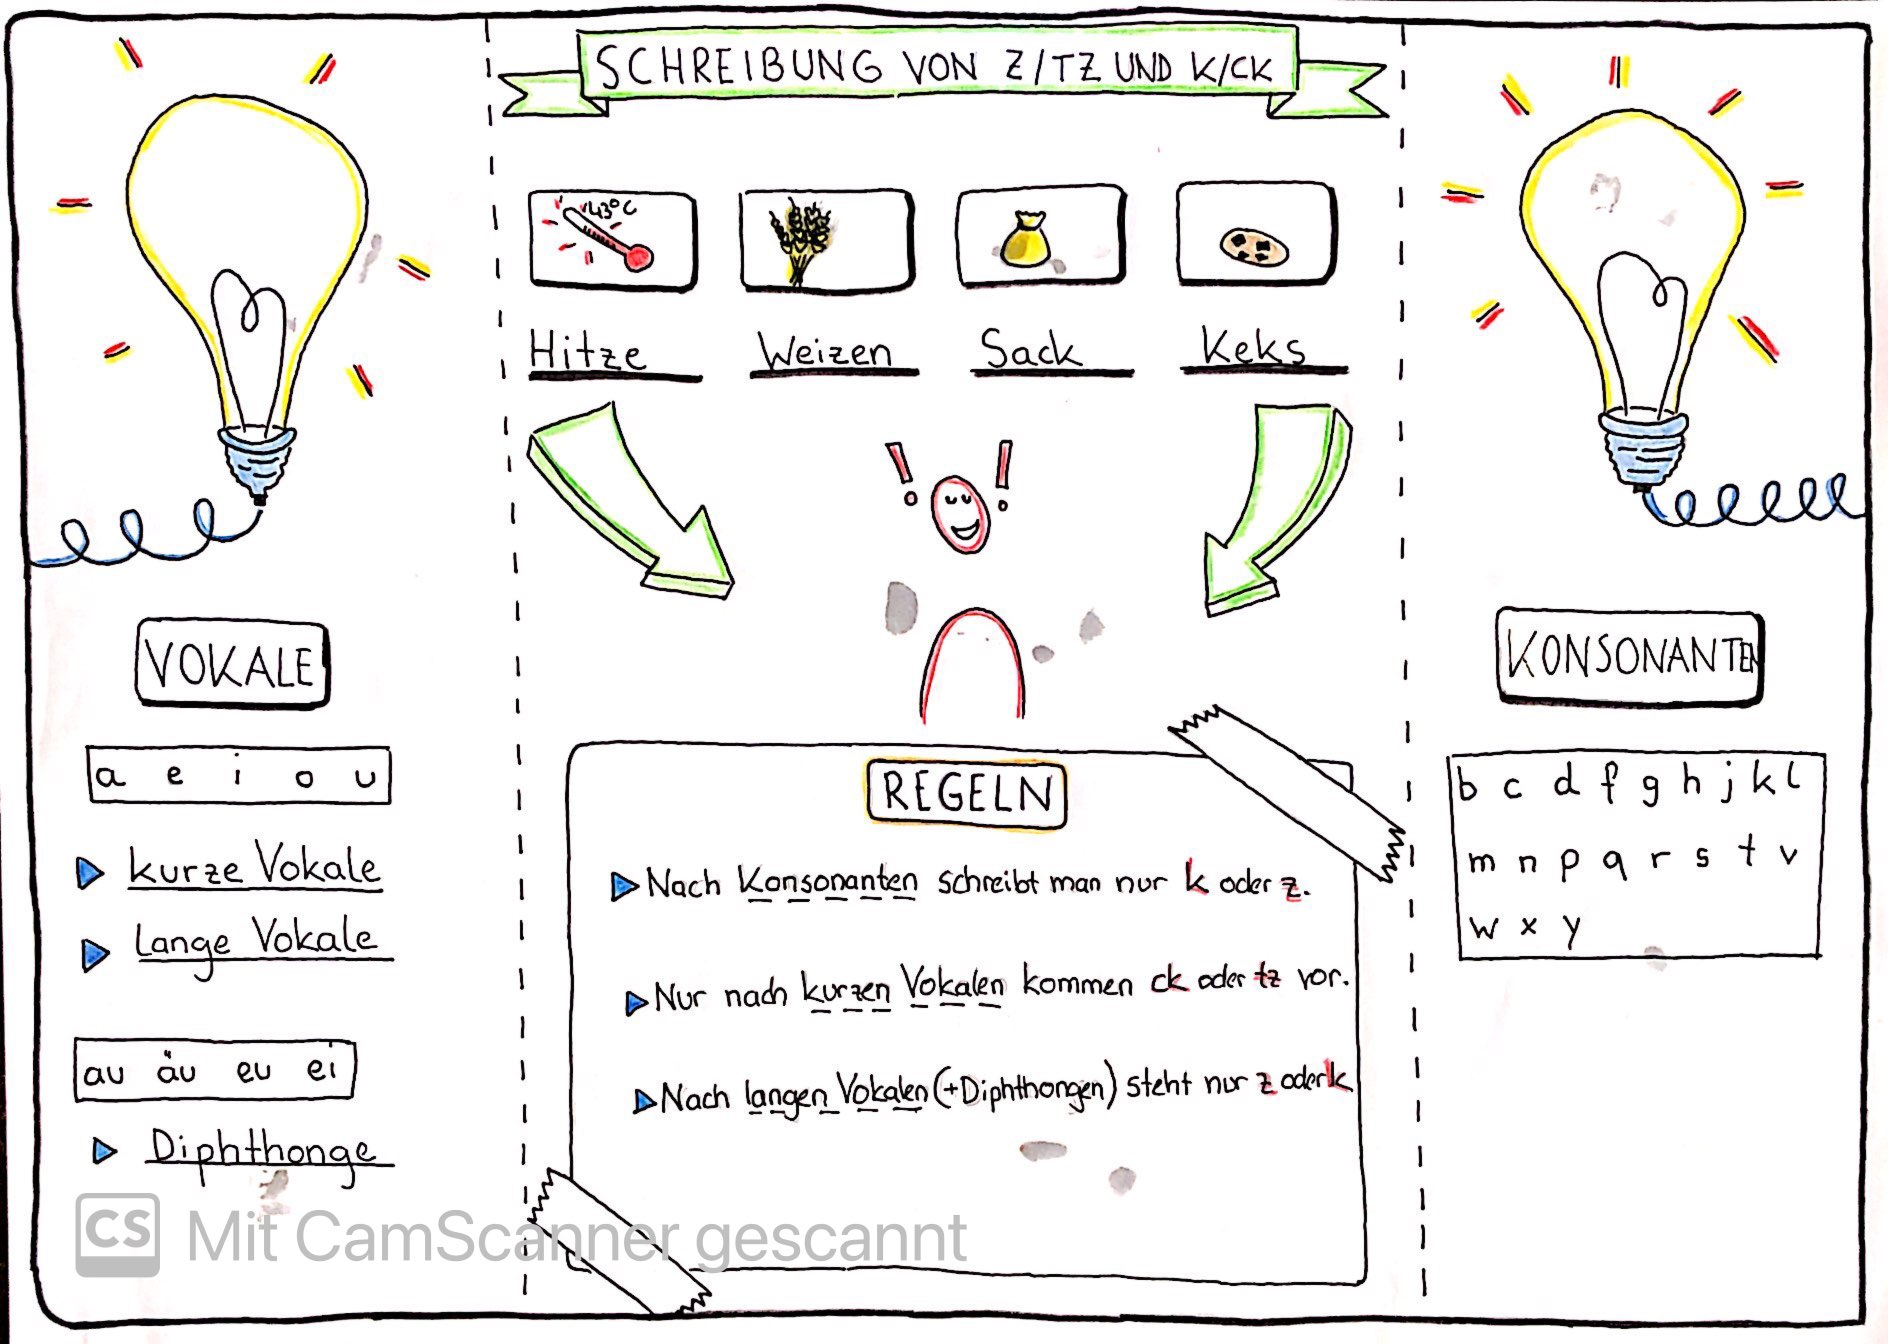 SCHREIBUNG VON Z/TZ UND K/CK
43°C
Hitze Weizen Sack Keks
VOKALE
a e i o u
kurze Vokale
lange Vokale
au äu eu ei
Diphthonge
REGELN
Nach Konsonanten schreibt man nur k oder z.
Nur nach kurzen Vokalen kommen ck oder tz vor.
Nach langen Vokalen (+Diphthongen) steht nur z oder k
KONSONANTEN
b c d f g h j k l
m n p q r s t v
w x y
CS Mit CamScanner gescannt